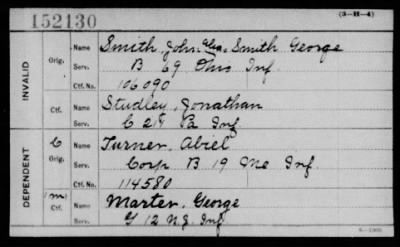 152130
(3-H-4)
INVALID
Orig. Name Smith, John, alias, Smith George
Serv. B 69 Ohio Inf.
Ctf. No. 106090
Ctf. Name Studley, Jonathan
Serv. C Pa Inf
DEPENDENT
C Orig. Name Turner, Abiel
Serv. Corp B 19 Me Inf.
Ctf. No. 114580
(m) Ctf. Name Marter, George
Serv. G 12 N.J. Inf